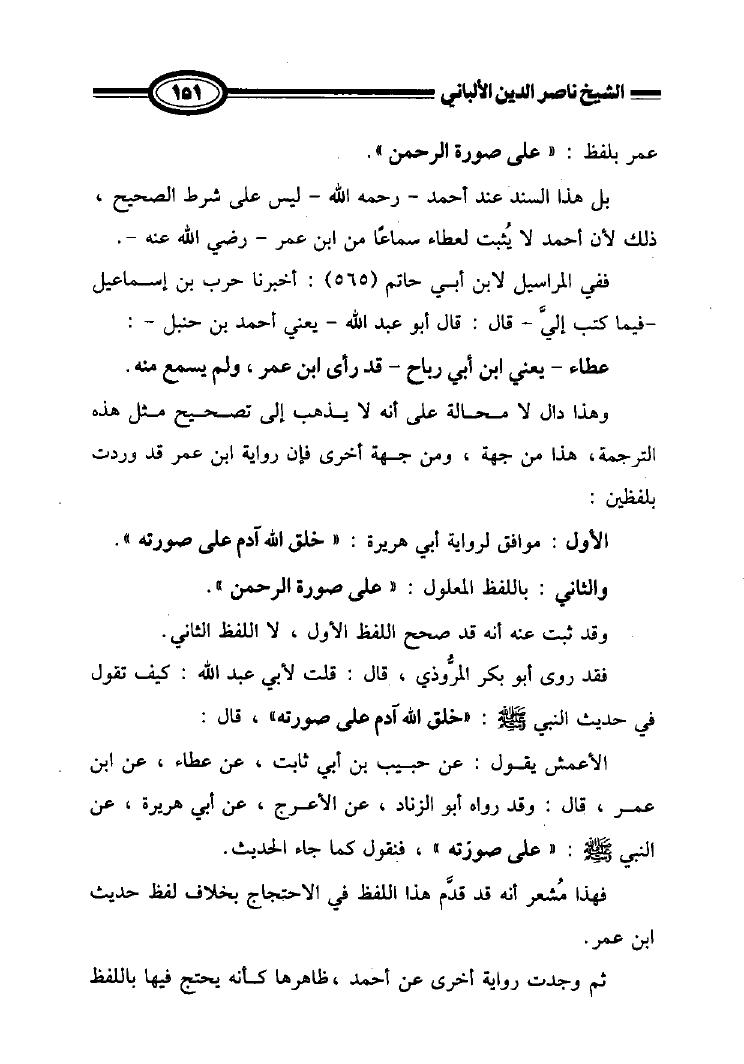 الشيخ ناصر الدين الألباني ١٥١
عمر بلفظ : « على صورة الرحمن » .
بل هذا السند عند أحمد - رحمه الله - ليس على شرط الصحيح ،
ذلك لأن أحمد لا يُثبت لعطاء سماعًا من ابن عمر - رضي الله عنه - .
ففي المراسيل لابن أبي حاتم (٥٦٥) : أخبرنا حرب بن إسماعيل
-فيما كتب إليَّ - قال : قال أبو عبد الله - يعني أحمد بن حنبل - :
عطاء - يعني ابن أبي رباح - قد رأى ابن عمر ، ولم يسمع منه .
وهذا دال لا محالة على أنه لا يذهب إلى تصحيح مثل هذه
الترجمة ، هذا من جهة ، ومن جهة أخرى فإن رواية ابن عمر قد وردت
بلفظين :
الأول : موافق لرواية أبي هريرة : « خلق الله آدم على صورته » .
والثاني : باللفظ المعلول : « على صورة الرحمن » .
وقد ثبت عنه أنه قد صحح اللفظ الأول ، لا اللفظ الثاني .
فقد روى أبو بكر المرُّوذي ، قال : قلت لأبي عبد الله : كيف تقول
في حديث النبي ﷺ : «خلق الله آدم على صورته» ، قال :
الأعمش يقول : عن حبيب بن أبي ثابت ، عن عطاء ، عن ابن
عمر ، قال : وقد رواه أبو الزناد ، عن الأعرج ، عن أبي هريرة ، عن
النبي ﷺ : « على صورته » ، فنقول كما جاء الحديث .
فهذا مُشعر أنه قد قدَّم هذا اللفظ في الاحتجاج بخلاف لفظ حديث
ابن عمر .
ثم وجدت رواية أخرى عن أحمد ، ظاهرها كأنه يحتج فيها باللفظ